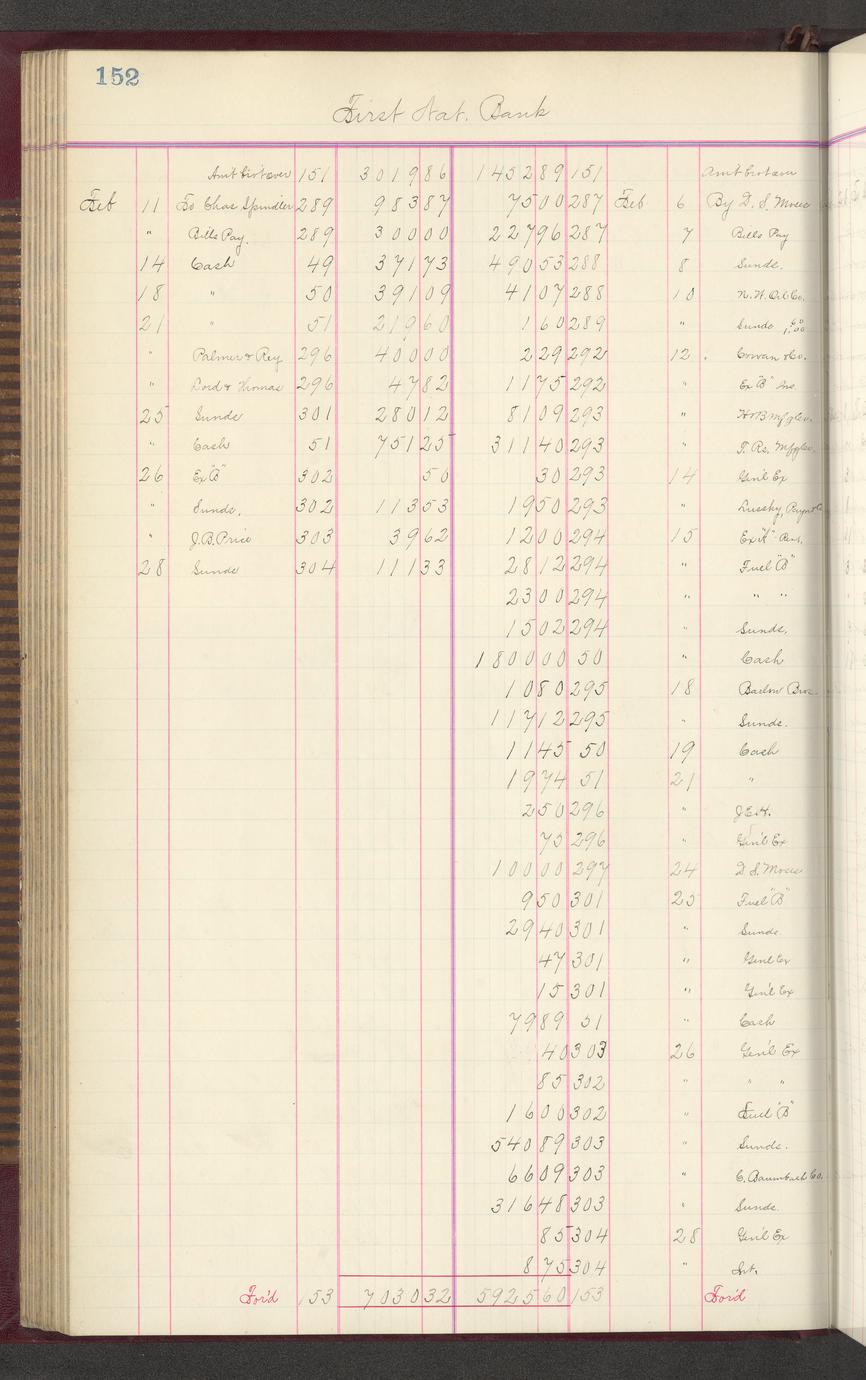 152
First Nat. Bank
Am't br't over 151 3019 86 1452 89 151 Am't br't over
Feb 11 To Chas Spindler 289 983 87 75 00 287 Feb 6 By D. S. Morse
" Bills Pay. 289 300 00 227 96 287 7 Bills Pay
14 Cash 49 371 73 490 53 288 8 Sunds.
18 " 50 391 09 41 07 288 10 N.W. Oil Co.
21 " 51 219 60 1 60 289 " Sunds
" Palmer & Rey 296 400 00 2 29 292 12 Cowan & Co.
" Lord & Thomas 296 47 82 11 75 292 " Ex "B" Ins
25 Sunds 301 280 12 81 09 293 "
" Cash 51 751 25 311 40 293 "
26 Ex "B" 302 50 30 293 14 Gen'l Ex
" Sunds. 302 113 53 19 50 293 " Lussky, Payn
" J.B. Price 303 39 62 12 00 294 15 Ex "A" Rent.
28 Sunds 304 111 33 28 12 294 " Fuel "B"
23 00 294 " " "
15 02 294 " Sunds.
1800 00 50 " Cash
10 80 295 18 Barlow Bros.
117 12 295 " Sunds.
11 45 50 19 Cash
19 74 51 21 "
2 50 296 " J.E.H.
75 296 " Gen'l Ex
100 00 297 24 D. S. Morse
9 50 301 25 Fuel "B"
29 40 301 " Sunds.
47 301 " Gen'l Ex
15 301 " Gen'l Ex
79 89 51 " Cash
40 303 26 Gen'l Ex
85 302 " " "
16 00 302 " Fuel "B"
540 89 303 " Sunds.
66 09 303 " C. Baumbach Co.
316 48 303 " Sunds.
85 304 28 Gen'l Ex
8 75 304 " Int.
For'd 153 7030 32 5925 60 153 For'd